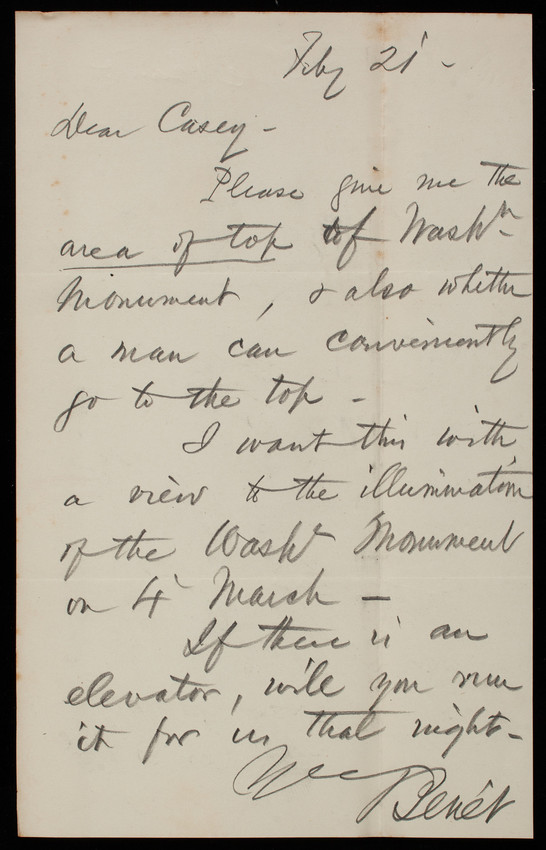 Feby 21 -
Dear Casey -
Please give me the
area of top of Washn
Monument, & also whether
a man can conveniently
go to the top -
I want this with
a view to the illumination
of the Washn Monument
on 4 March -
If there is an
elevator, will you run
it for us that night -
Benét